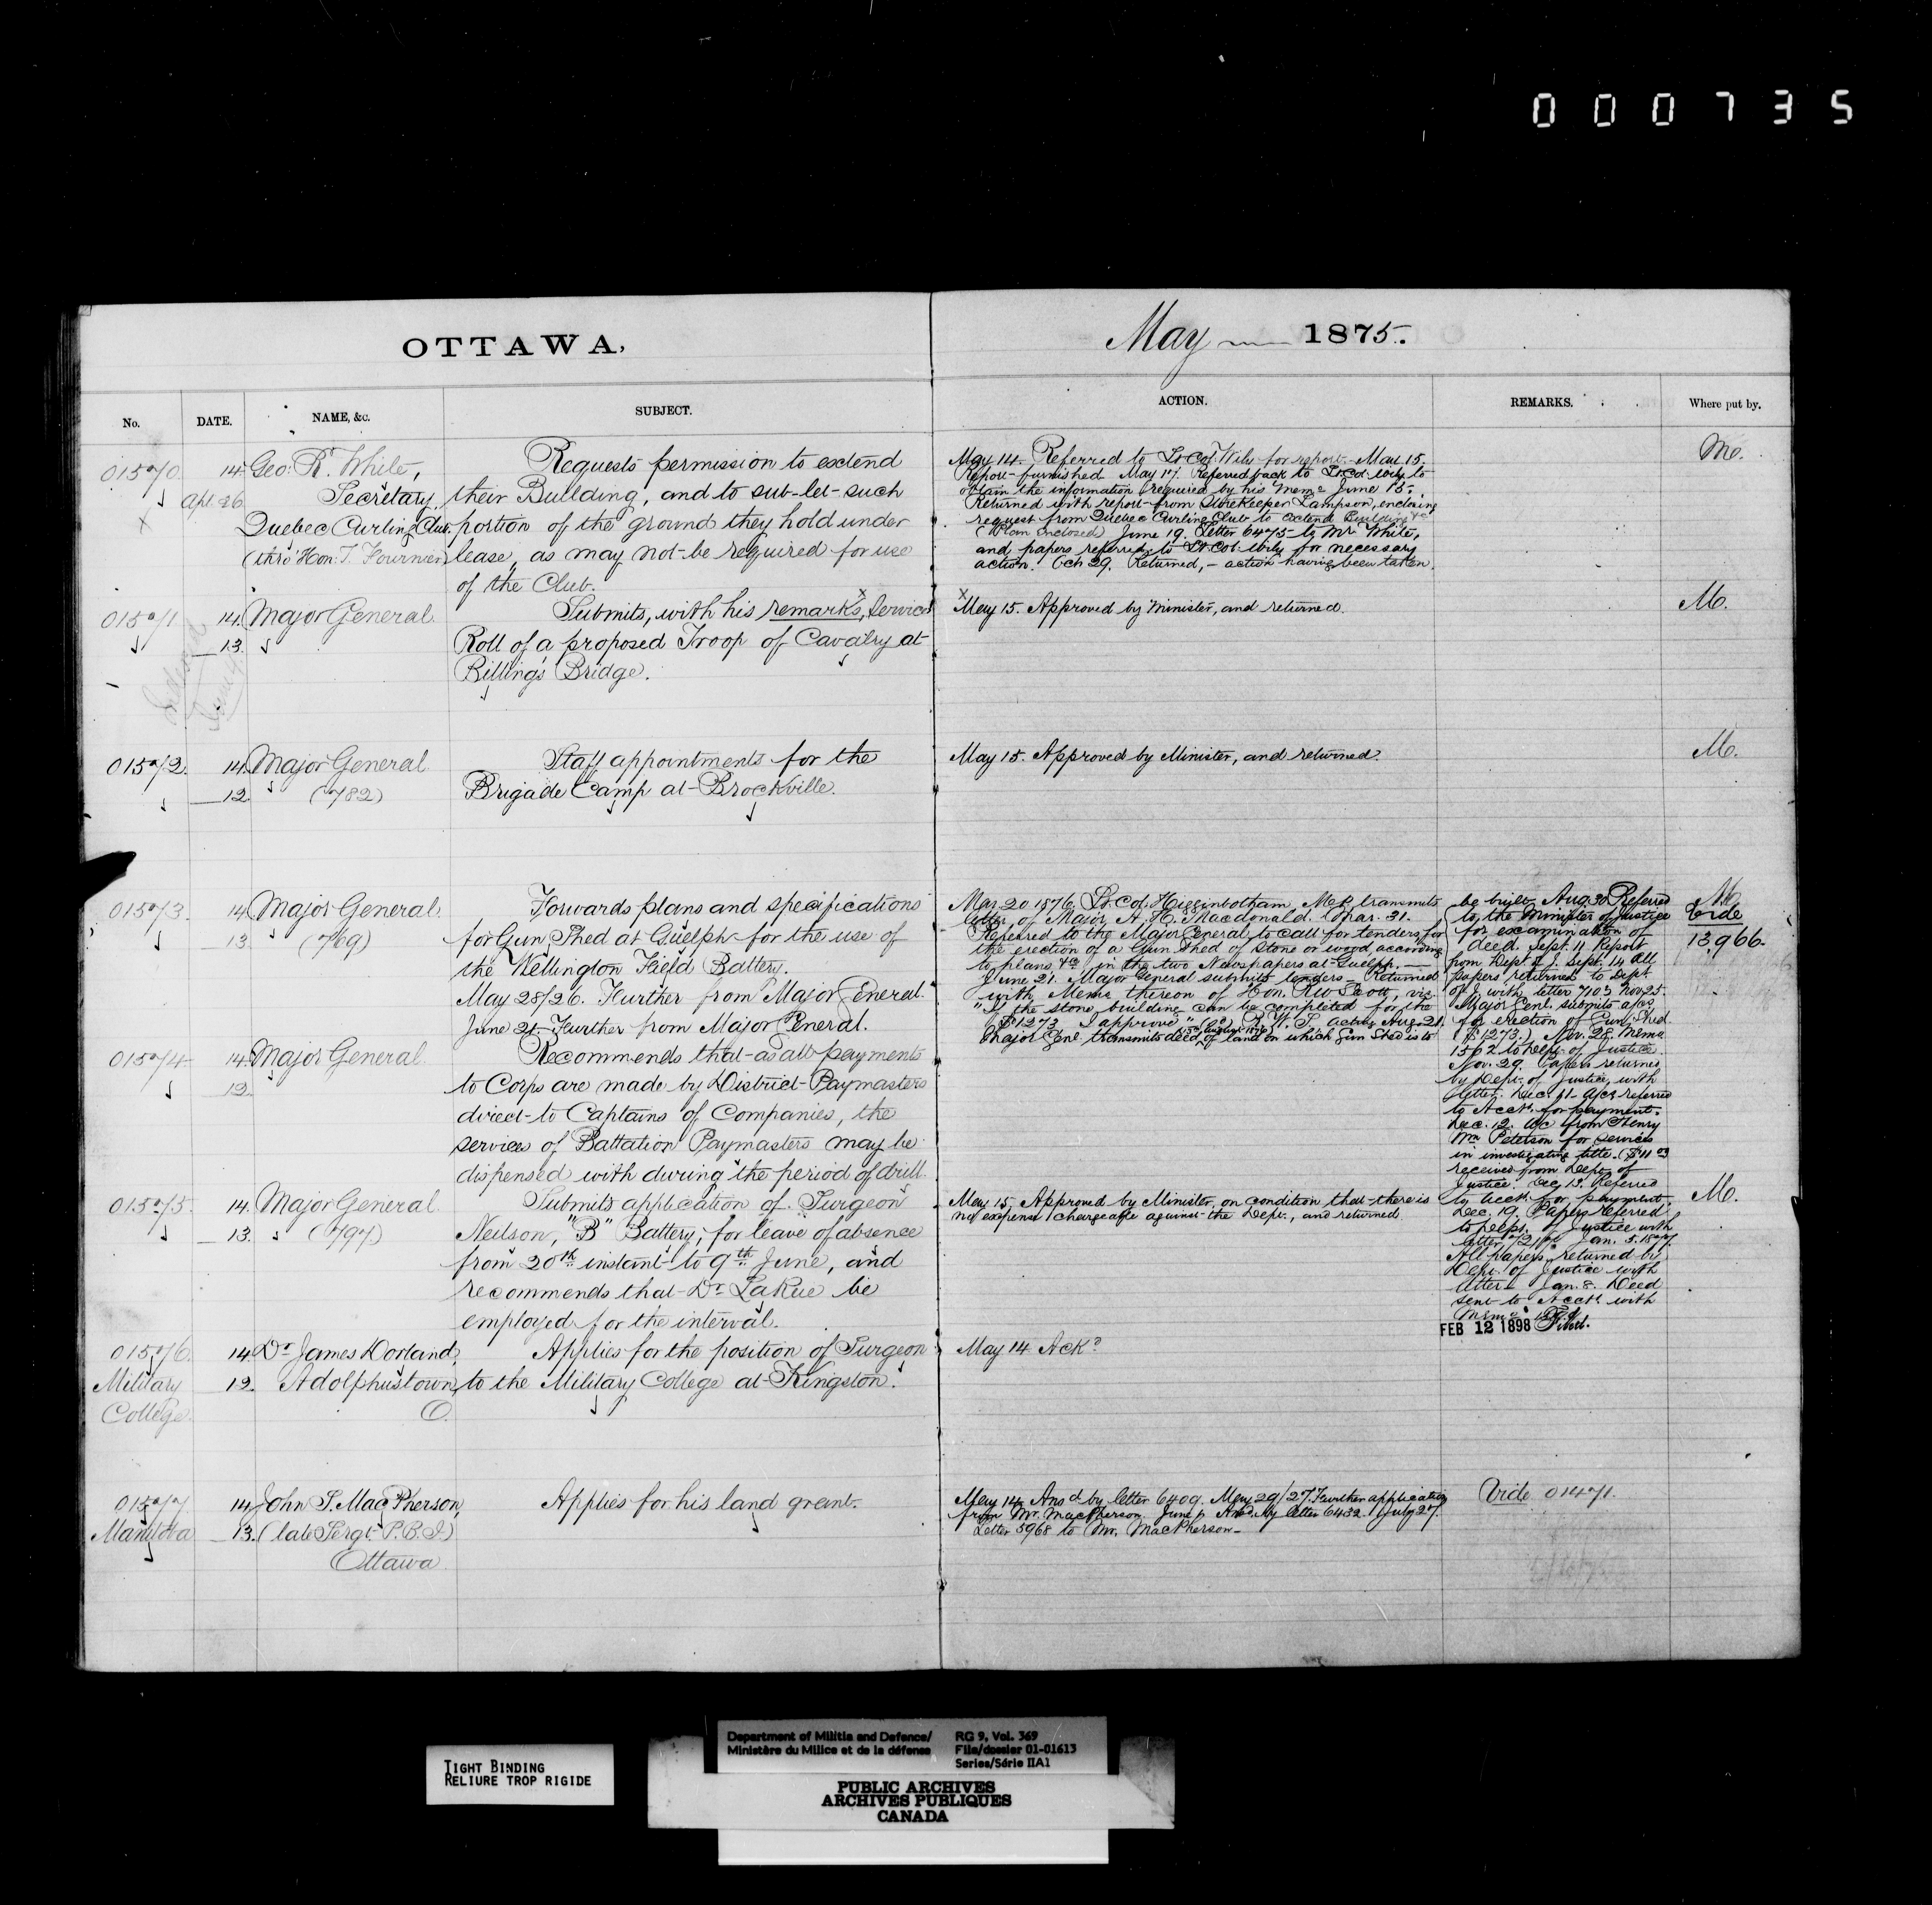 000735
OTTAWA,
May 1875.
No.
DATE.
NAME, &c.
SUBJECT.
ACTION.
REMARKS.
Where put by.
01570
14.
Apl. 26
Geo: R. White,
Secretary,
Quebec Curling Club.
(thro' Hon. T. Fournier)
Requests permission to extend
their Building, and to sub-let such
portion of the ground they hold under
lease, as may not be required for use
of the Club.
May 14. Referred to Lt. Col. Wily for report. May 15.
Report furnished May 17. Referred back to Lt. Col. Wily to
obtain the information required by his Memo June 15.
Returned with report from Storekeeper Lampson, enclosing
request from Quebec Curling Club to extend Building &c
(Plan enclosed) June 19. Letter 6475 to Mr White,
and papers referred to Lt. Col. Wily for necessary
action. Oct 29. Returned, - action having been taken.
M.
01571
14.
13.
Major General.
Submits, with his remarks, Service
Roll of a proposed Troop of Cavalry at
Billing's Bridge.
x May 15. Approved by Minister, and returned.
M.
01572.
14.
12.
Major General
(782)
Staff appointments for the
Brigade Camp at Brockville.
May 15. Approved by Minister, and returned.
M.
01573.
14.
13.
Major General.
(769)
Forwards plans and specifications
for Gun Shed at Guelph for the use of
the Wellington Field Battery.
May 28/26. Further from Major General.
June 21. Further from Major General.
Mar. 20 1876. Lt. Col. Higginbotham, M.P. transmits
letter of Major A. H. Macdonald. Mar. 31.
Referred to the Major General to call for tenders for
the erection of a Gun Shed of stone or wood, according
to plans &c in the two Newspapers at Guelph.
June 21. Major General submits tenders - Returned
with Memo thereon of Hon. R W Scott, viz.
"If the stone building can be completed for the
$1273 I approve" (sd) R. W. S. acting Aug. 21.
Major Genl. transmits deed of land on which Gun Shed is to
be built. Aug. 30 Referred
to the Minister of Justice
for examination of
deed. Sept. 11 Report
from Dept. of J. Sept. 14 All
papers returned to Dept.
of J. with letter 7103 Nov. 25.
Major Genl. submits a/cs
for erection of Gun Shed
($1273.) Nov. 28. Memo
1562 to Dept. of Justice.
Nov. 29. Papers returned
by Dept. of Justice, with
letter. Dec. 11 a/cs referred
to Acct. for payment.
Dec. 12. a/c from Henry
Wm Peterson for services
in investigating title. ($11
received from Dept. of
Justice. Dec 13. Referred
to Acct. for payment.
Dec. 19. Papers referred
to Dept. of Justice with
letter Jan. 5. 1877.
All papers returned by
Dept. of Justice with
letter Jan. 8. Deed
sent to Acct. with
Memo
FEB 12 1898 Filed.
M.
Vide
13966.
01574.
14.
12.
Major General
Recommends that as all payments
to Corps are made by District Paymasters
direct to Captains of Companies, the
services of Battalion Paymasters may be
dispensed with during the period of drill.
01575.
14.
13.
Major General
(797)
Submits application of Surgeon
Neilson, "B" Battery, for leave of absence
from 20th instant to 9th June, and
recommends that Dr. LaRue be
employed for the interval.
May 15. Approved by Minister, on condition that there is
no expense chargeable against the Dept., and returned
M.
01576.
Military
College.
14.
12.
Dr. James Dorland,
Adolphustown,
O.
Applies for the position of Surgeon
to the Military College at Kingston.
May 14 Ackd
01577
Manitoba
14.
13.
John S. MacPherson,
(late Sergt. P.B.I.)
Ottawa
Applies for his land grant.
May 14 Ansd by letter 6409. May 29/27. Further application
from Mr. MacPherson. June Ansd. by letter 6432. July 27.
Letter 5968 to Mr. MacPherson
Vide 01471.
TIGHT BINDING
RELIURE TROP RIGIDE
Department of Militia and Defence/
Ministère du Milice et de la défense
RG 9, Vol. 369
File/dossier 01-01613
Series/Série IIA1
PUBLIC ARCHIVES
ARCHIVES PUBLIQUES
CANADA